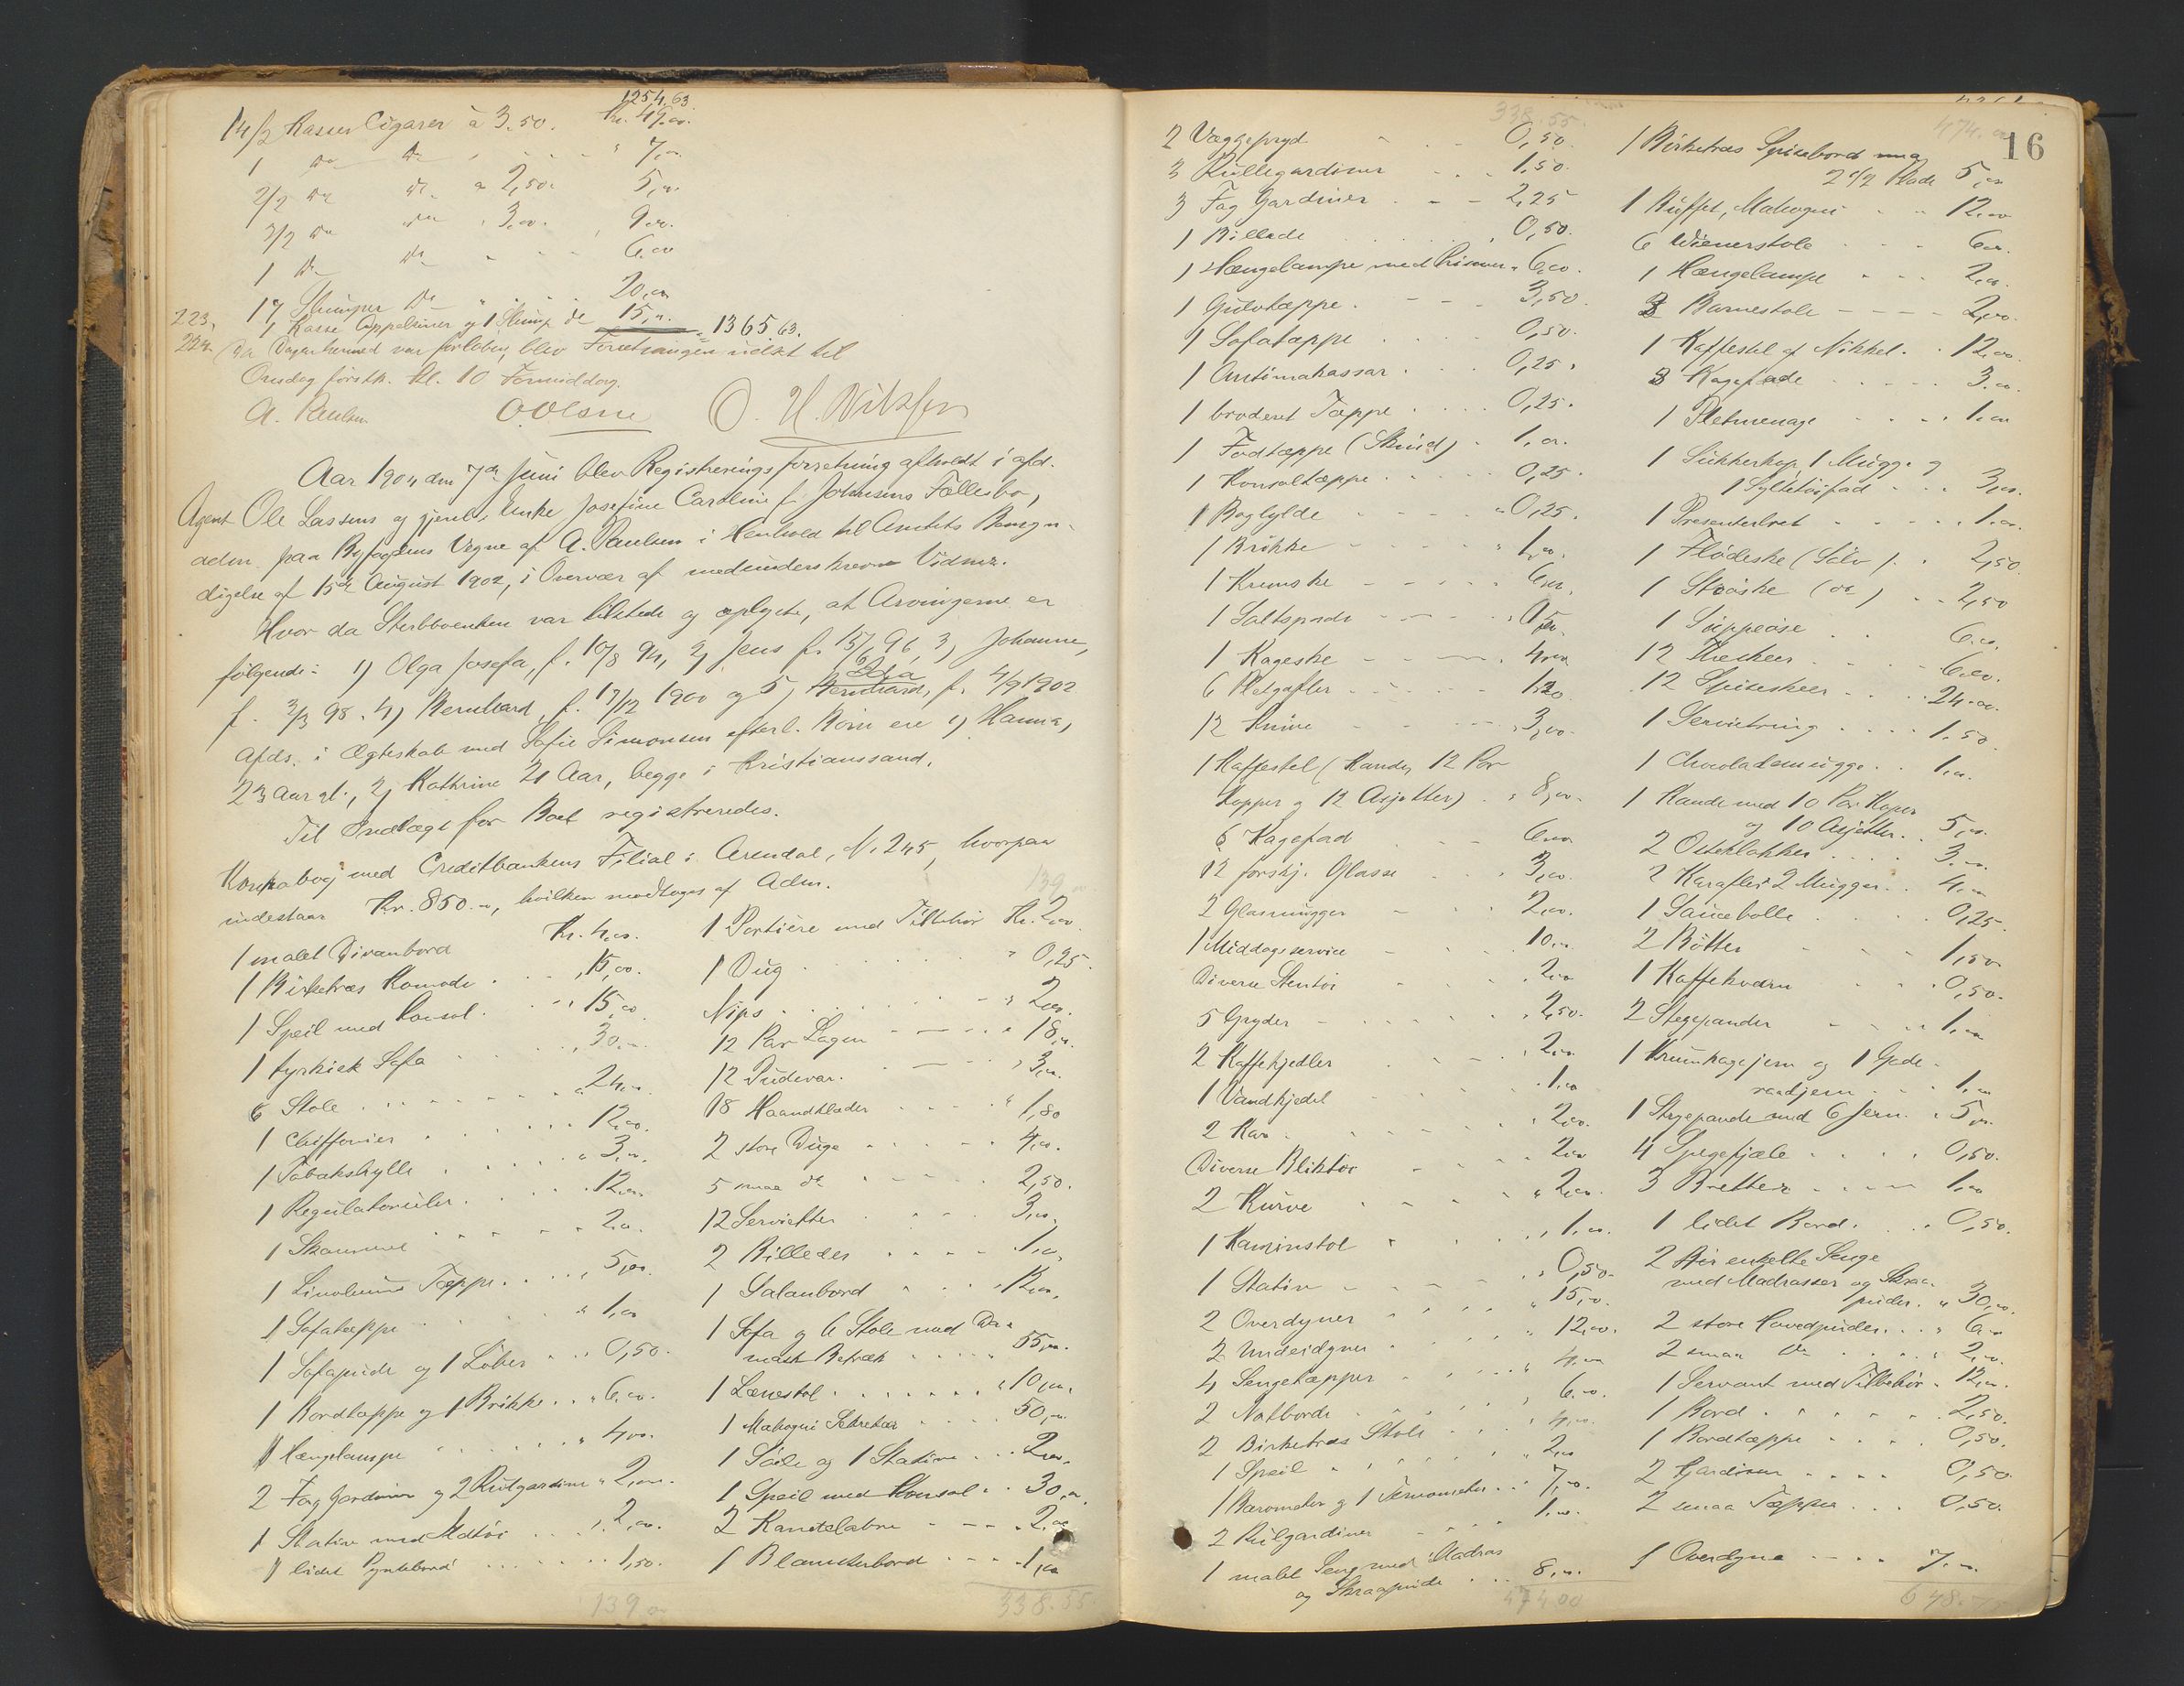 1254.63
14/2 Kasser Cigarer à 3.50. Kr. 49.00.
1 do do " 7,00
2/2 do do a 2,50. 5,00.
3/2 do do 3,00. 9,00.
1 do do 6,00
17 Slumper do 20,00
223. 1 Kasse Appelsiner og 1 Slump do 15,00. = 1365,63.
224. Da Dagen hermed var forløben, blev Forretningen udsat til
Onsdag førstk. Kl. 10 Formiddag.
A. Paulsen O. Olsen O. H. Nilssen
Aar 1904 den 7de Juni blev Registreringsforretning afholdt i afd.
Agent Ole Lassens og gjenl. Enke Josefine Caroline f. Johnsens Fællesbo,
adm. paa Byfogdens Vegne af A. Paulsen i Henhold til Amtets Bemyn-
digelse af 15de August 1902, i Overvær af medunderskrevne Vidner.
Hvor da Sterbboenken var tilstede og oplyste, at Arvingerne er
følgende: 1) Olga Josefa, f. 10/8 94, 2) Jens f. 15/6 96, 3) Johanne,
f. 3/3 98. 4) Bernhard, f. 17/12 1900 og 5) Bernhard, f. 4/9 1902
Afds. i Ægteskab med Sofie Simonsen efterl. Børn ere 1) Hanna,
23 Aar gl., 2) Kathrine 21 Aar, begge i Kristianssand.
Til Indtægt for Boet registreredes.
Kontrabog med Creditbankens Filial i Arendal, N. 245, hvorpaa
indestaar Kr. 850.00, hvilken modtoges af Adm.
139,00
1 malet Divanbord Kr. 4,00.
1 Birketræs Komode " 15,00.
1 Speil med Konsol " 15,00
1 tyrkisk Sofa " 30.00
6 Stole " 24,00
1 Chiffonier 12,00.
1 Tobakshylle " 3,00.
1 Regulatoruhr 12,00.
1 Skammel 2,00.
1 Linoleums Tæppe 5,00.
1 Sofatæppe " 1,00
1 Sofapude og 1 Løber 0,50.
1 Bordtæppe og 1 Brikke " 6,00.
1 Hængelampe " 4,00.
2 Fag Gardiner og 2 Rulgardiner " 2,00.
1 Stativ med Madtøi 2,00.
1 lidet Pyntebord 1,50.
139,00
1 Portière med Tilbehør Kr. 2,00.
1 Dug " 0,25.
Nips " 2,00.
12 Par Lagen " 18,00.
12 Pudevar. " 3,00.
18 Haandklæder " 1,80
2 store Duge 4,00.
5 smaa do 2,50.
12 Servietter 3,00.
2 Billeder 1,00.
1 Salonbord " 12,00.
1 Sofa og 6 Stole med Da-
mask Betræk " 55,00.
1 Lænestol " 10,00.
1 Mahogni Sekretær 50,00.
1 Søile og 1 Stativ 2,00.
1 Speil med Konsol 30,00.
2 Kandelabre 2,00
1 Blomsterbord 1,00
338.55
338.55.
2 Vægpryd 0,50.
3 Rullegardiner 1,50.
3 Fag Gardiner 2,25
1 Billede 0,50.
1 Hængelampe med Prismer " 6,00.
1 Gulvtæppe 3,50.
1 Sofatæppe 0,50.
1 Antimakassar 0,25.
1 broderet Tæppe 0,25.
1 Fodtæppe (Skind) 1,00.
1 Konsoltæppe 0,25.
1 Boghylde " 0,25.
1 Brikke " 1,00.
1 Krumske 6,00.
1 Saltspade
1 Kageske 4,00
6 Pletgafler 1,20
12 Knive 3,00.
1 Kaffestel (Kande, 12 Par
Kopper og 12 Asjetter) " 8,00.
6 Kagefad 6,00
12 forskj. Glasse 3,00.
2 Glasmugger 2,00.
1 Middagsservice 10,00
Diverse Stentøi 2,00
5 Gryder 2,50.
2 Kaffekjedler 2,00
1 Vandkjedel 1,00
2 Kar 2,00.
Diverse Bliktøi 2,00
2 Kurve " 2,00.
1 Kaminstol 1,00.
1 Stativ 0,50.
2 Overdyner " 15,00.
2 Underdyner " 12,00.
4 Sengetæpper " 4,00
2 Natborde 6,00.
2 Birketræs Stole 4,00.
1 Speil 2,00
1 Barometer og 1 Termometer 7,00.
2 Rulgardiner 1,00.
1 malet Seng med Madras
og Skraapude 8,00.
474.00
474.00
16
1 Birketræs Spisebord med
2 1/2 Plade 5,00
1 Buffet, Mahogni 12,00
6 Wienerstole 6,00.
1 Hængelampe 2,00.
2 Barnestole 2,00.
1 Kaffestel af Nikkel. 12,00.
3 Kagefade 3,00.
1 Pletmenage 1,00
1 Sukkerkop, 1 Mugge og
1 Syltetøifad 3,00.
1 Presenterbret 1,00.
1 Flødeske (Sølv) 2,50
1 Strøske (do) 2,50
1 Suppeøse 6,00.
12 Theskeer 6,00.
12 Spiseskeer 24,00.
1 Serviettring 1,50
1 Chocolademugge 1,00.
1 Kande med 10 Par Kopper
og 10 Asjetter. 5,00.
2 Osteklokker 3,00.
2 Karafler 2 Mugger 4,00
1 Saucebolle 0,25.
2 Bøtter 1,50
1 Kaffekværn 0,50.
2 Stegepander 1,00
1 Krumkagejern og 1 Gode-
raadjern 1,00
1 Strygepande med 6 Jern. 5,00.
4 Spegefjæle 0,50.
3 Bretter 1,00
1 lidet Bord. 0,50.
2 enkelte Senge
med Madrasser og Skraa-
puder. " 30,00.
2 store Hovedpuder. " 6,00
2 smaa do " 2,00.
1 Servant med Tilbehør 12,00.
1 Bord 2,50.
1 Bordtæppe 0,50.
2 Gardiner 0,50
2 smaa Tæpper 0,50.
1 Overdyne 7,00.